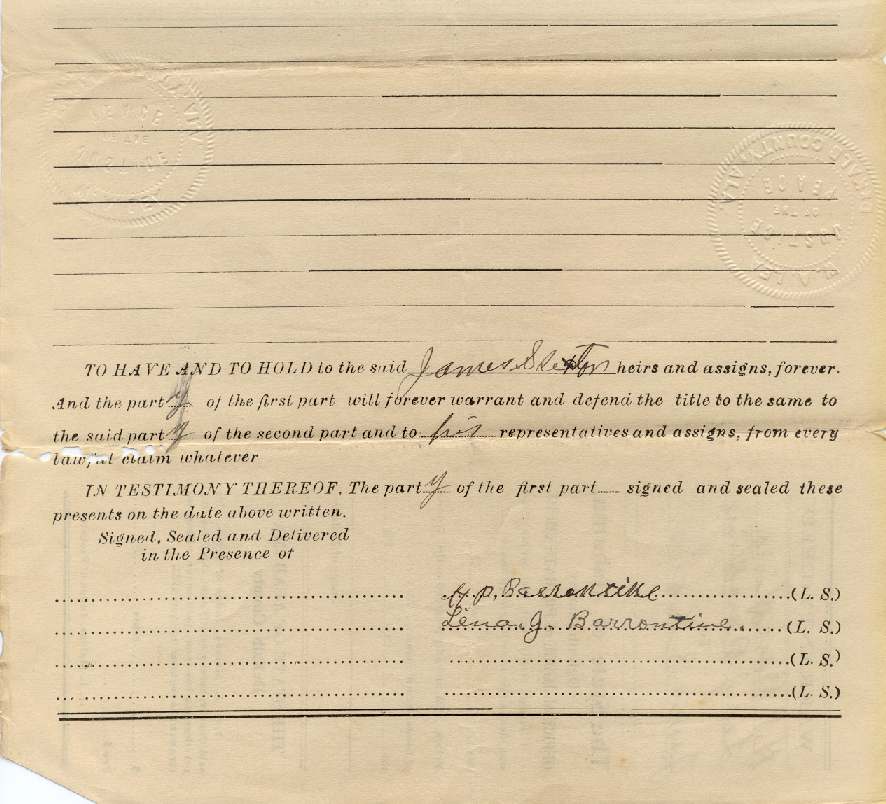 JUSTICE
OF THE
PEACE
COUNTY, ALA.
JUSTICE
OF THE
PEACE
TO HAVE AND TO HOLD to the said James heirs and assigns, forever.
And the party of the first part will forever warrant and defend the title to the same to
the said party of the second part and to his representatives and assigns, from every
lawful claim whatever
IN TESTIMONY THEREOF, The party of the first part signed and sealed these
presents on the date above written.
Signed, Sealed and Delivered
in the Presence of
H. P. Barrentine (L. S.)
Lena J. Barrontine (L. S.)
(L. S.)
(L. S.)